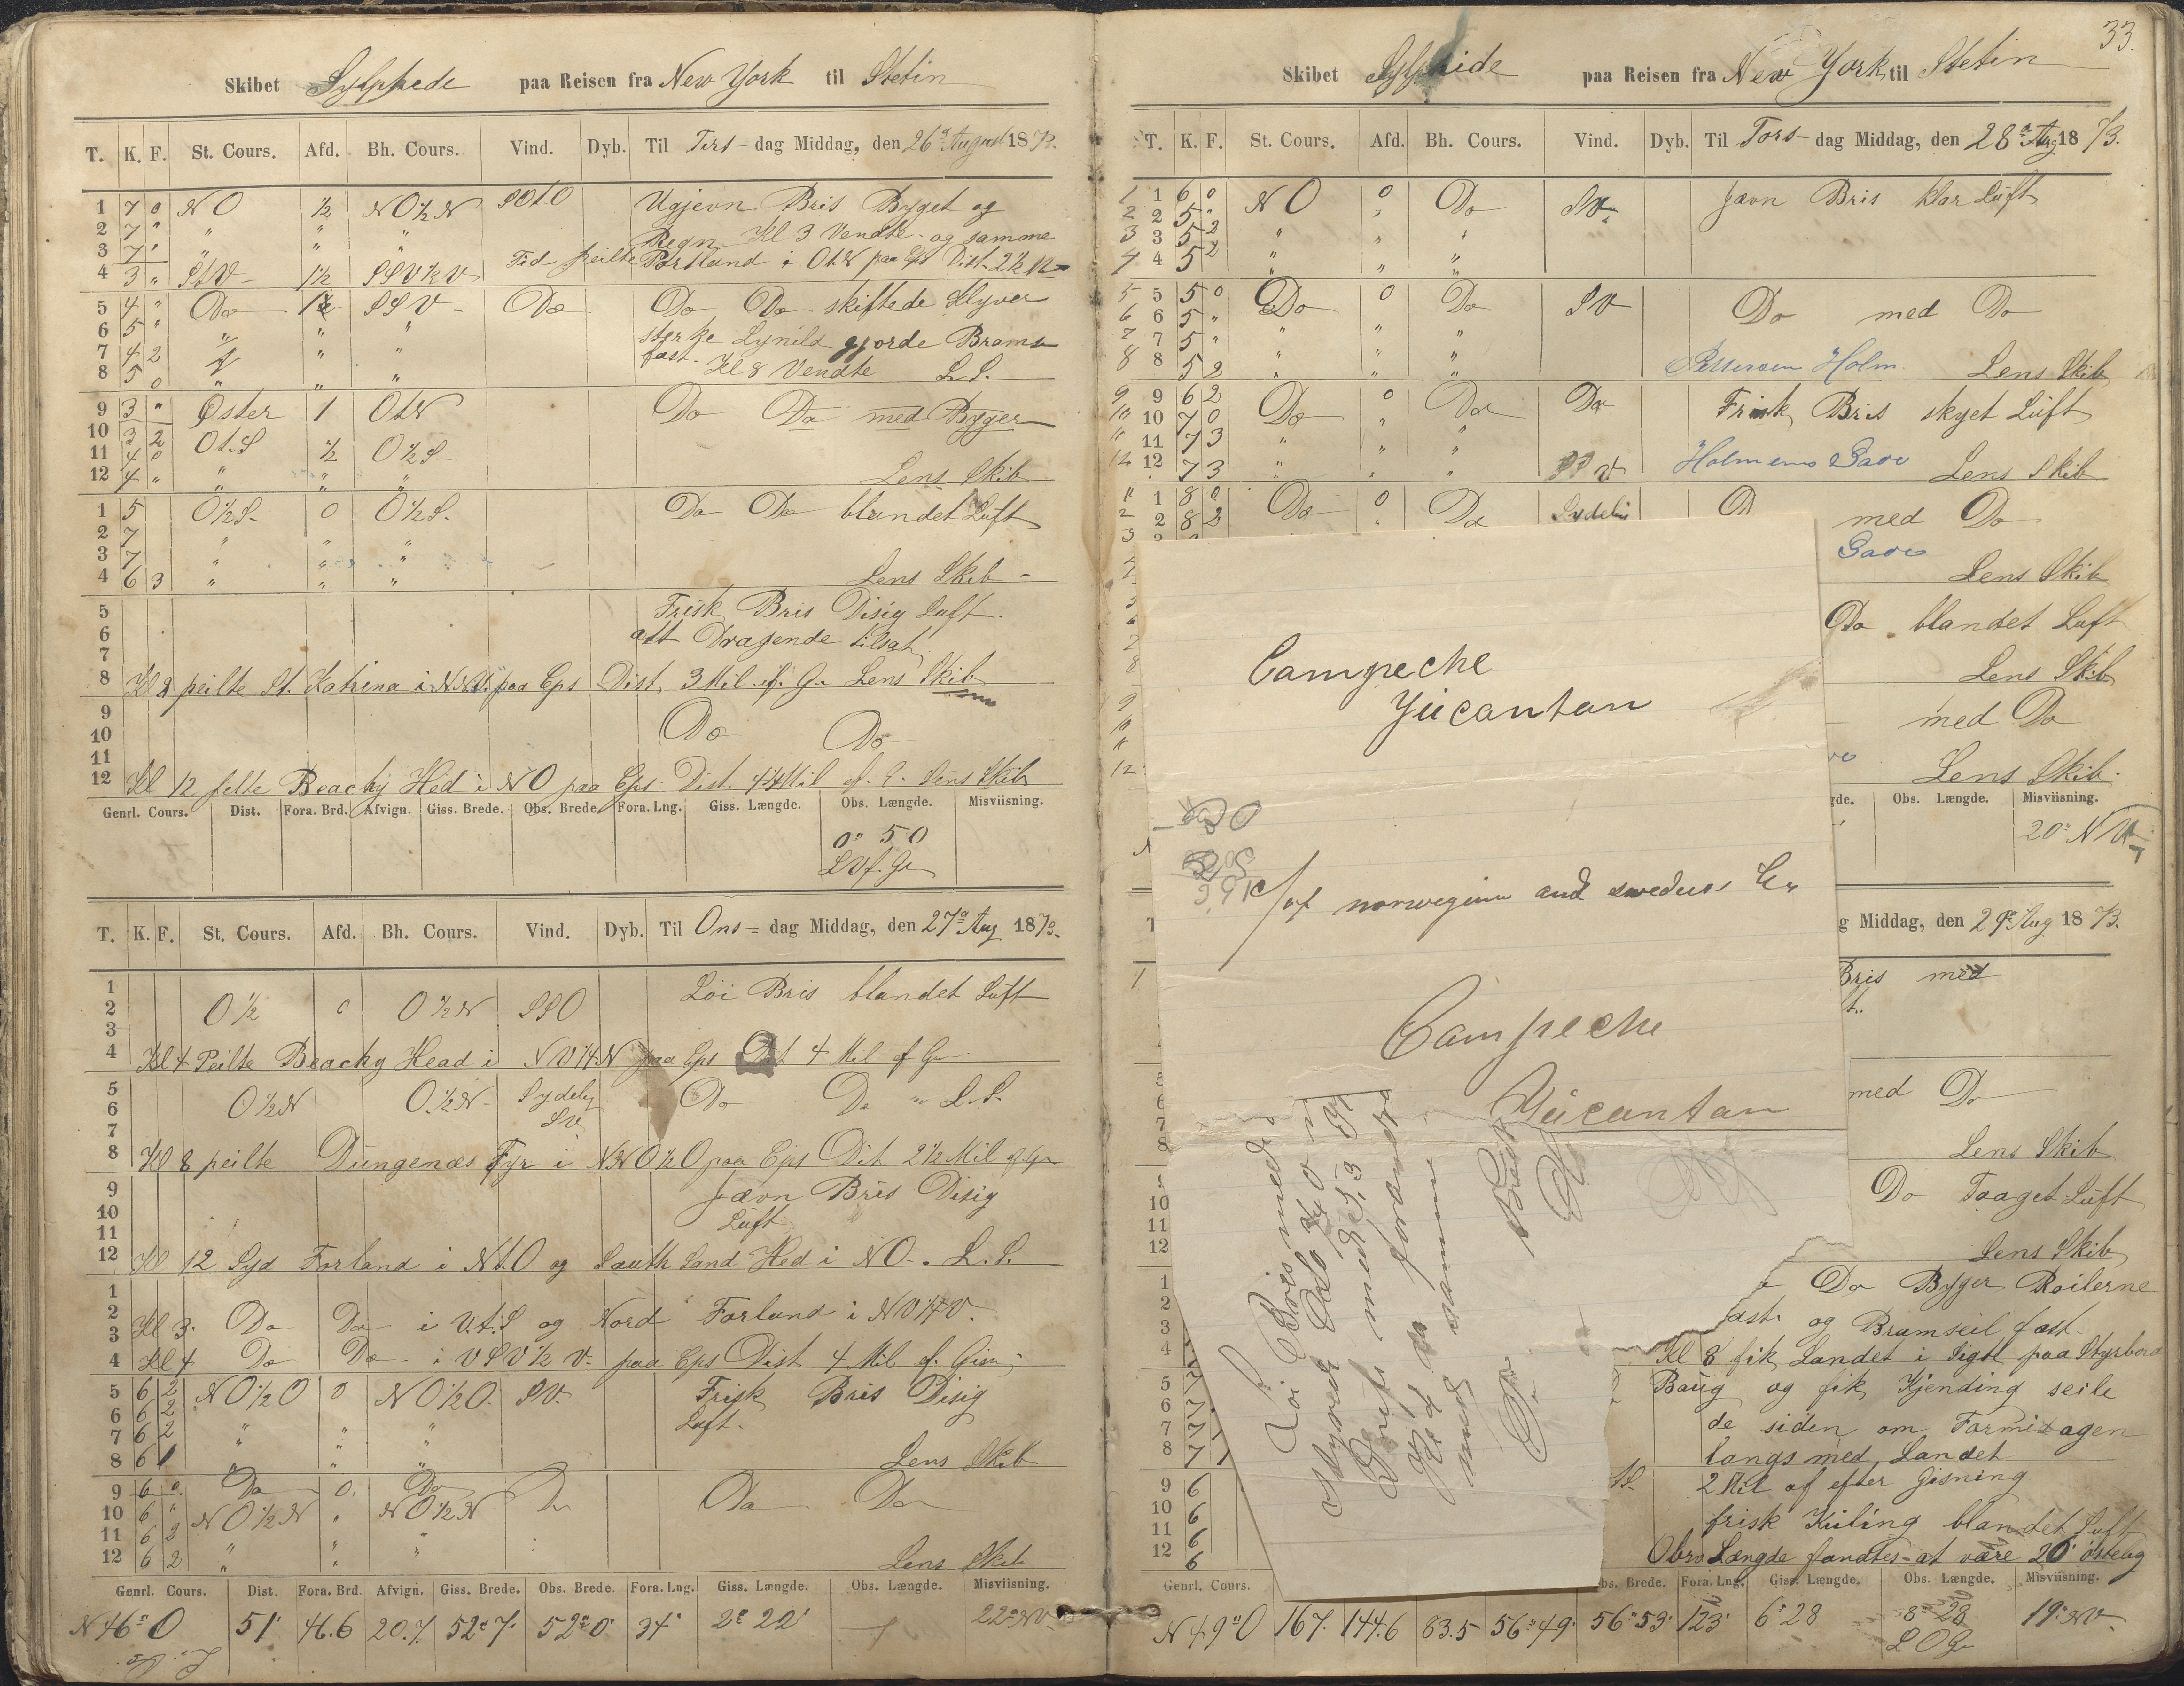 Skibet Sylphede paa Reisen fra New York til Stetin
T. K. F. St. Cours. Afd. Bh. Cours. Vind. Dyb. Til Tirs-dag Middag, den 26de August 1873.
1 7 0 NO ½ NO½N SOtO Ugjevn Bris Byget og
2 7 " " " " Regn Kl 3 Vendte og samme
3 7 " " " " Tid peilte Portland i OtN paa Eps Dist. 2½
4 3 " StV 1½ SSV½V
5 4 " Do SSV Do Do Do skiftede Klyver
6 5 " " " " sterke Lynild gjorde Bram
7 4 2 " " fast. Kl 8 Vendte L. S.
8 5 0 " " "
9 3 " Øster 1 OtN Do Do med Byger
10 3 2 OtS ½ O½S
11 4 0
12 4 " " " " Lens Skib
1 5 O½S 0 O½S Do Do blandet Luft
2 7 " " "
3 7 " " "
4 6 3 " " " Lens Skib
5 Frisk Bris Disig Luft.
6 alt Dragende tilsat
7
8 Kl 8 peilte St. Katrina i paa Eps Dist. 3 Mil ef. G. Lens Skib
9 Do Do
10
11
12 Kl 12 pelte Beachy Hed i NO paa Eps Dist. 4¼ Mil ef. G. Lens Skib
Genrl. Cours. Dist. Fora. Brd. Afvign. Giss. Brede. Obs. Brede. Fora. Lng. Giss. Længde. Obs. Længde. Misviisning.
0° 50
LVf. Gr
T. K. F. St. Cours. Afd. Bh. Cours. Vind. Dyb. Til Ons-dag Middag, den 27de Aug 1873.
1 Löi Bris blandet Luft
2 O½ 0 O½N SSO
3
4 Kl 4 Peilte Beachy Head i NV¼N paa Eps Dist 4 Mil ef G.
5 Sydelig
6 O½N O½N SV Do Do L.S.
7
8 Kl 8 peilte Dungenæs Fyr i NNO½O paa Eps Dit 2½ Mil ef G.
9 Jævn Bris Disig
10 Luft
11
12 Kl 12 Syd Forland i NtO og South Sand Hed i NO. L.S.
1
2 Kl 3. Do Do i VtS og Nord Forland i NV¼V.
3
4 Kl 4 Do Do i VSV½V. paa Eps Dist 4 Mil ef. Gisn.
5 6 2 NO½O 0 NO½O SV. Frisk Bris Disig
6 6 2 Luft.
7 6 2 " " "
8 6 1 " " " Lens Skib
9 6 0 Do 0 Do Do Do Do
10 6 " NO½N " NO½N
11 6 2 " " "
12 6 2 " " Lens Skib
Genrl. Cours. Dist. Fora. Brd. Afvign. Giss. Brede. Obs. Brede. Fora. Lng. Giss. Længde. Obs. Længde. Misviisning.
N46°O 51' 46.6 20.7 52° 7' 52° 0' 34' 2° 22' 22° NV
33.
Skibet Sylphide paa Reisen fra New York til Stetin
T. K. F. St. Cours. Afd. Bh. Cours. Vind. Dyb. Til Tors-dag Middag, den 28de Aug 1873.
1 1 6 0 NO 0 Do SV Jævn Bris klar Luft
2 2 5 " "
3 3 5 2 " " "
4 4 5 2 " " "
5 5 5 0 Do 0 Do SV Do med Do
6 6 5 "
7 7 5 " " " "
8 8 5 2 " " " Holm. Lens Skib
9 9 6 2 Do 0 Do Do Frisk Bris skyet Luft
10 10 7 0 "
11 11 7 3 " " "
12 12 7 3 " " " SSV Lens Skib
11 1 8 0 Do 0 Do Sydelig med Do
2 2 8 2
3
Lens Skib
Do blandet Luft
Lens Skib
med Do
Lens Skib.
gde. Obs. Længde. Misviisning.
20° NV
g Middag, den 29de Aug 1873.
Bris med
t.
med Do
Lens Skib
Do Taaget Luft
Lens Skib
Do Byger Roilerne
ast. og Bramseil fast.
Kl 8 fik Landet i Sigte paa Styrbord
Baug og fik Kjending seile
de siden om Formidagen
langs med Landet
2 Mil af efter Gisning
frisk Kuling blandet Luft
Obrv Længde fandtes at være 20' østelig
Genrl. Cours. bs. Brede. Fora. Lng. Giss. Længde. Obs. Længde. Misviisning.
N49°O 167. 144.6 83.5 56° 49' 56° 53' 123' 6° 28 8° 28 19° NV
L O Gr
Campeche
Yücantan
c/of norwegian and swedens
Campeche
Yücantan
Löi Bris med
styrede
med
forandre
samme